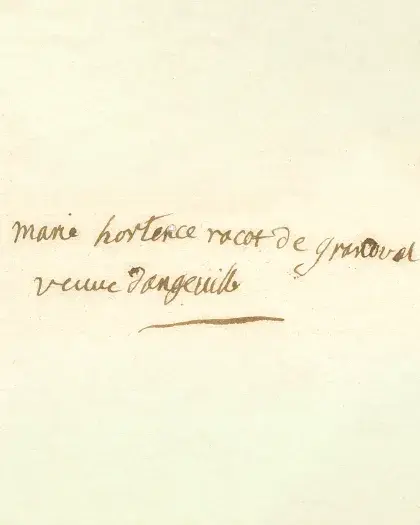 marie hortence racot de grandval
veuve dangeuille